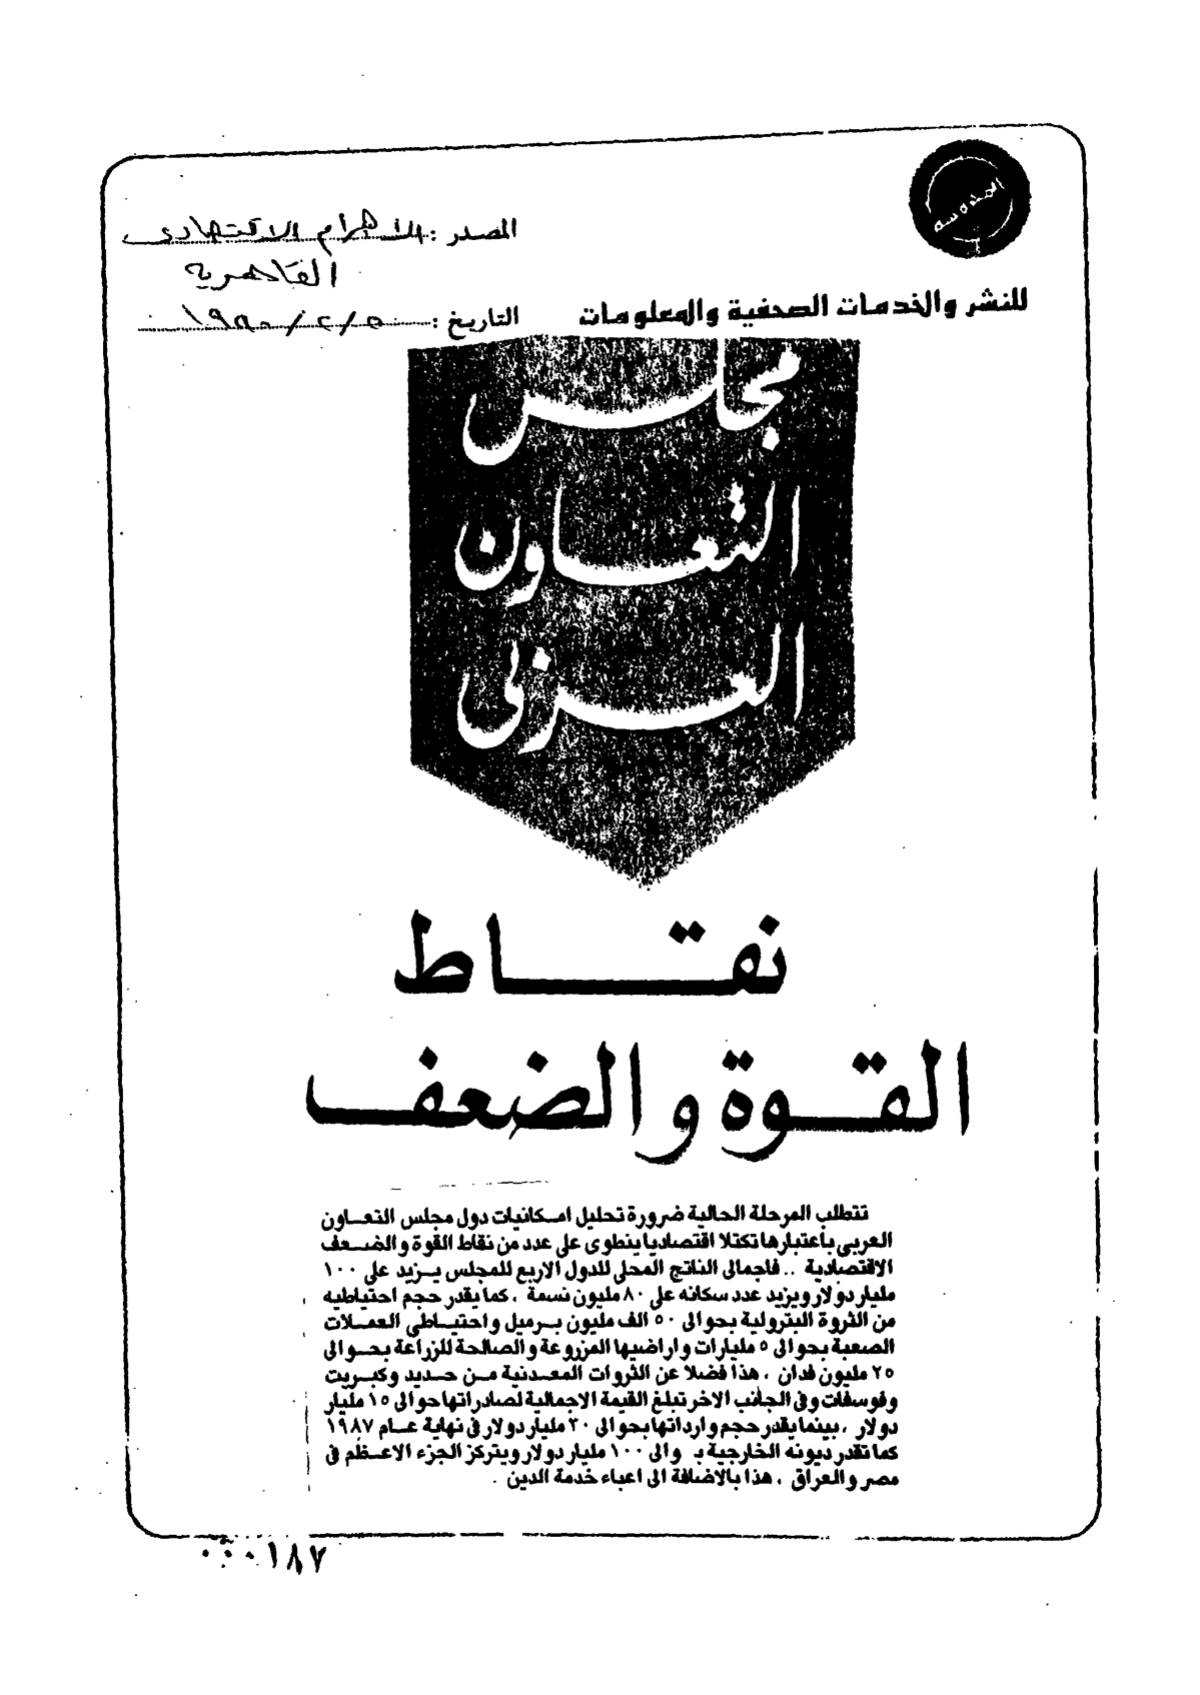 المدوسة
المصدر : الاهرام الاقتصادى
القاهرية
للنشر والخدمات الصحفية والمعلومات
التاريخ :
مجلس
التعاون
العربى
نقاط
القوة والضعف
تتطلب المرحلة الحالية ضرورة تحليل امكانيات دول مجلس التعاون
العربي بأعتبارها تكتلا اقتصاديا ينطوى على عدد من نقاط القوة والضعف
الاقتصادية .. فاجمالى الناتج المحلى للدول الاربع للمجلس يزيد على ١٠٠
مليار دولار ويزيد عدد سكانه على ٨٠ مليون نسمة ، كما يقدر حجم احتياطيه
من الثروة البترولية بحوالى ٥٠ الف مليون برميل واحتياطى العملات
الصعبة بحوالى ٥ مليارات واراضيها المزروعة والصالحة للزراعة بحوالى
٢٥ مليون فدان ، هذا فضلا عن الثروات المعدنية من حديد وكبريت
وفوسفات وفى الجانب الاخر تبلغ القيمة الاجمالية لصادراتها حوالى ١٥ مليار
دولار ، بينما يقدر حجم وارداتها بحوالى ٢٠ مليار دولار فى نهاية عام ١٩٨٧
كما تقدر ديونه الخارجية بـ والى ١٠٠ مليار دولار ويتركز الجزء الاعظم فى
مصر والعراق ، هذا بالاضافة الى اعباء خدمة الدين .
٠٠٠١٨٧